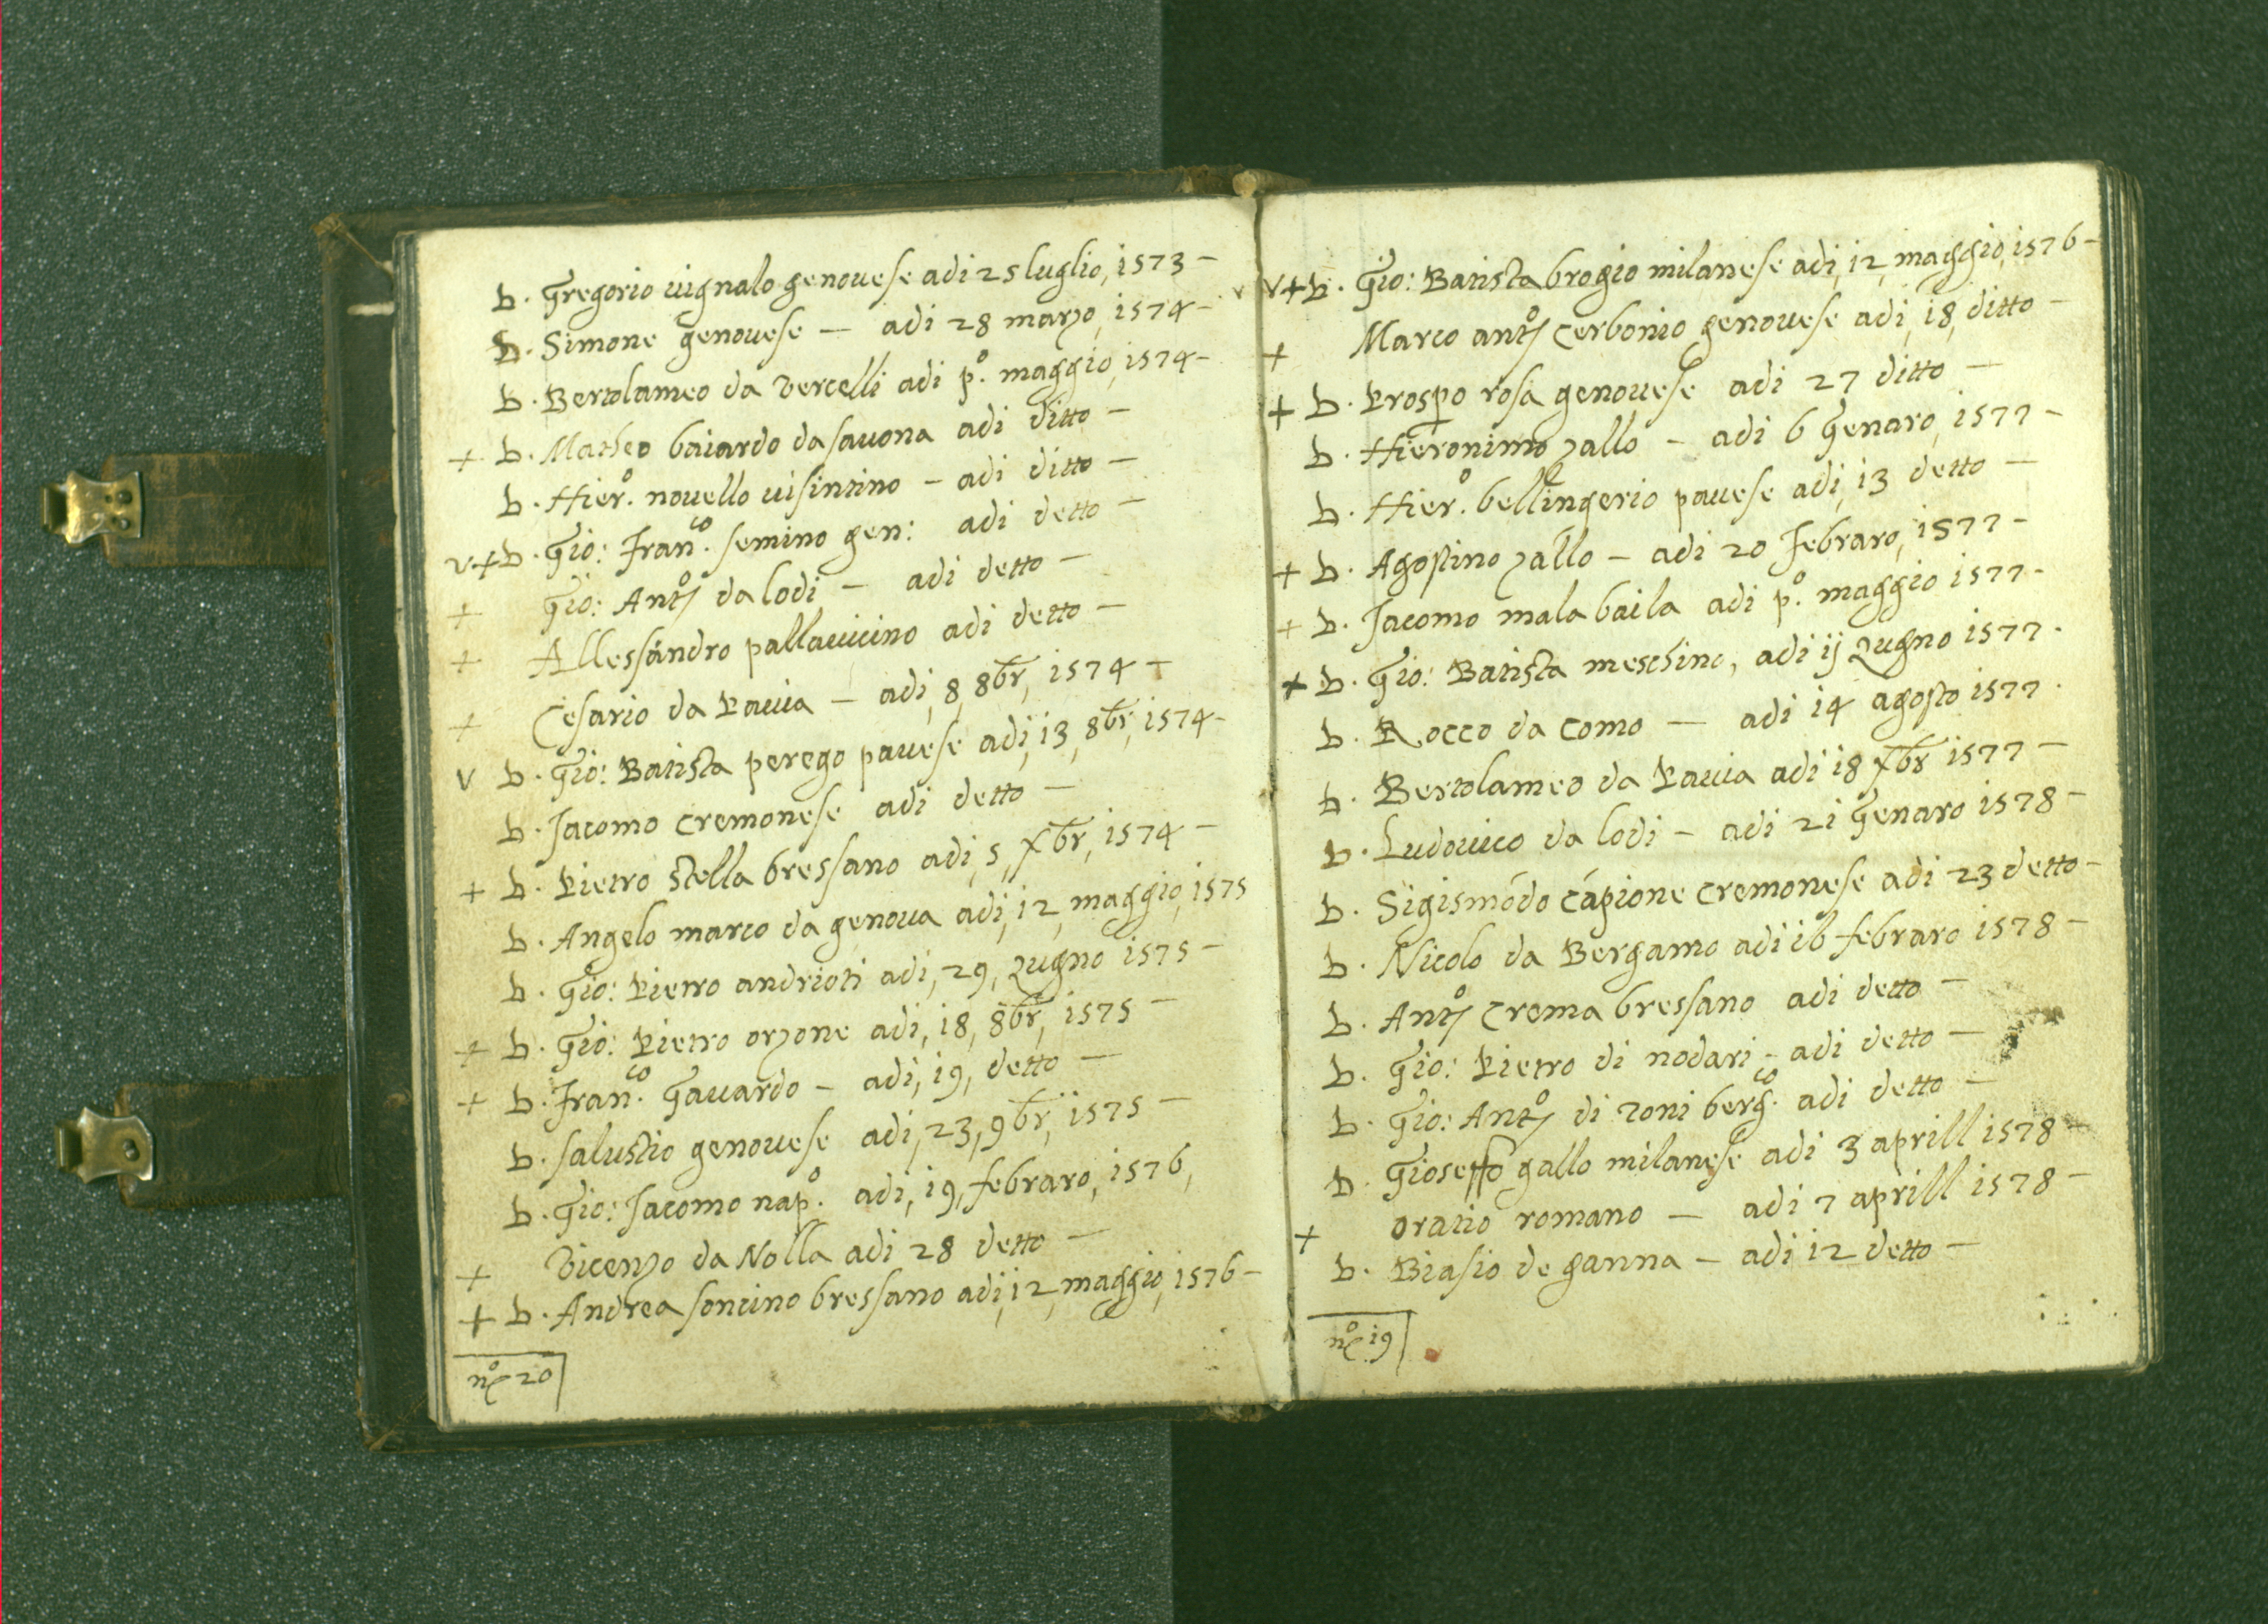 b. Gregorio uignalo genouese adi 25 luglio, 1573 –
b. Simone genouese – adi 28 marzo, 1574 –
b. Bertolameo da Vercelli adi pº. maggio, 1574 –
+ b. Matheo baiardo da sauona adi ditto –
b. Hierº. nouello uisintino – adi ditto –
v + b. Gio: Franco. semino gen: adi detto –
+ Gio: Antº da lodi – adi detto –
+ Allessandro pallauicino adi detto –
+ Cesario da Pauia – adi, 8, 8br, 1574 –
v b. Gio: Batista perego pauese adi, 13, 8br, 1574 –
b. Jacomo cremonese adi detto –
+ b. Pietro stella bressano adi, 5, xbr, 1574 –
b. Angelo marco da genoua adi, 12, maggio, 1575
b. Gio: Pietro andrioti adi, 29, zugno 1575 –
+ b. Gio: Pietro orzone adi, 18, 8br, 1575 –
+ b. Franco. Gauardo – adi, 19, detto –
b. salustio genouese adi, 23, 9br, 1575 –
b. Gio: Jacomo napº. adi, 19, febraro, 1576,
+ Vicenzo da Nolla adi 28 detto –
+ b. Andrea soncino bressano adi, 12, maggio, 1576 –
nº 20
v + b. Gio: Batista brogio milanese adi, 12, maggio, 1576 –
+ Marco antº cerbonio genouese adi, 18, ditto –
+ b. Prospo rosa genouese adi 27 ditto –
b. Hieronimo zallo – adi 6 Genaro, 1577 –
b. Hierº. bellingerio pauese adi, 13 detto –
+ b. Agostino zallo – adi 20 Febraro, 1577 –
+ b. Jacomo mala baila adi pº. maggio 1577 –
+ b. Gio: Batista meschino, adi ij zugno 1577.
b. Rocco da como – adi 14 agosto 1577.
b. Bertolameo da Pauia adi 18 xbr 1577 –
b. Ludouico da lodi – adi 21 Genaro 1578 –
b. Sigismódo cápione cremonese adi 23 detto –
b. Nicolo da Bergamo adi 16 febraro 1578 –
b. Antº crema bressano adi detto –
b. Gio: Pietro di nodari – adi detto –
b. Gio: Antº di zoni bergco. adi detto –
b. Gioseffo gallo milanese adi 3 aprill 1578 –
+ oratio romano – adi 7 aprill 1578 –
b. Biasio de ganna – adi 12 detto –
nº 19